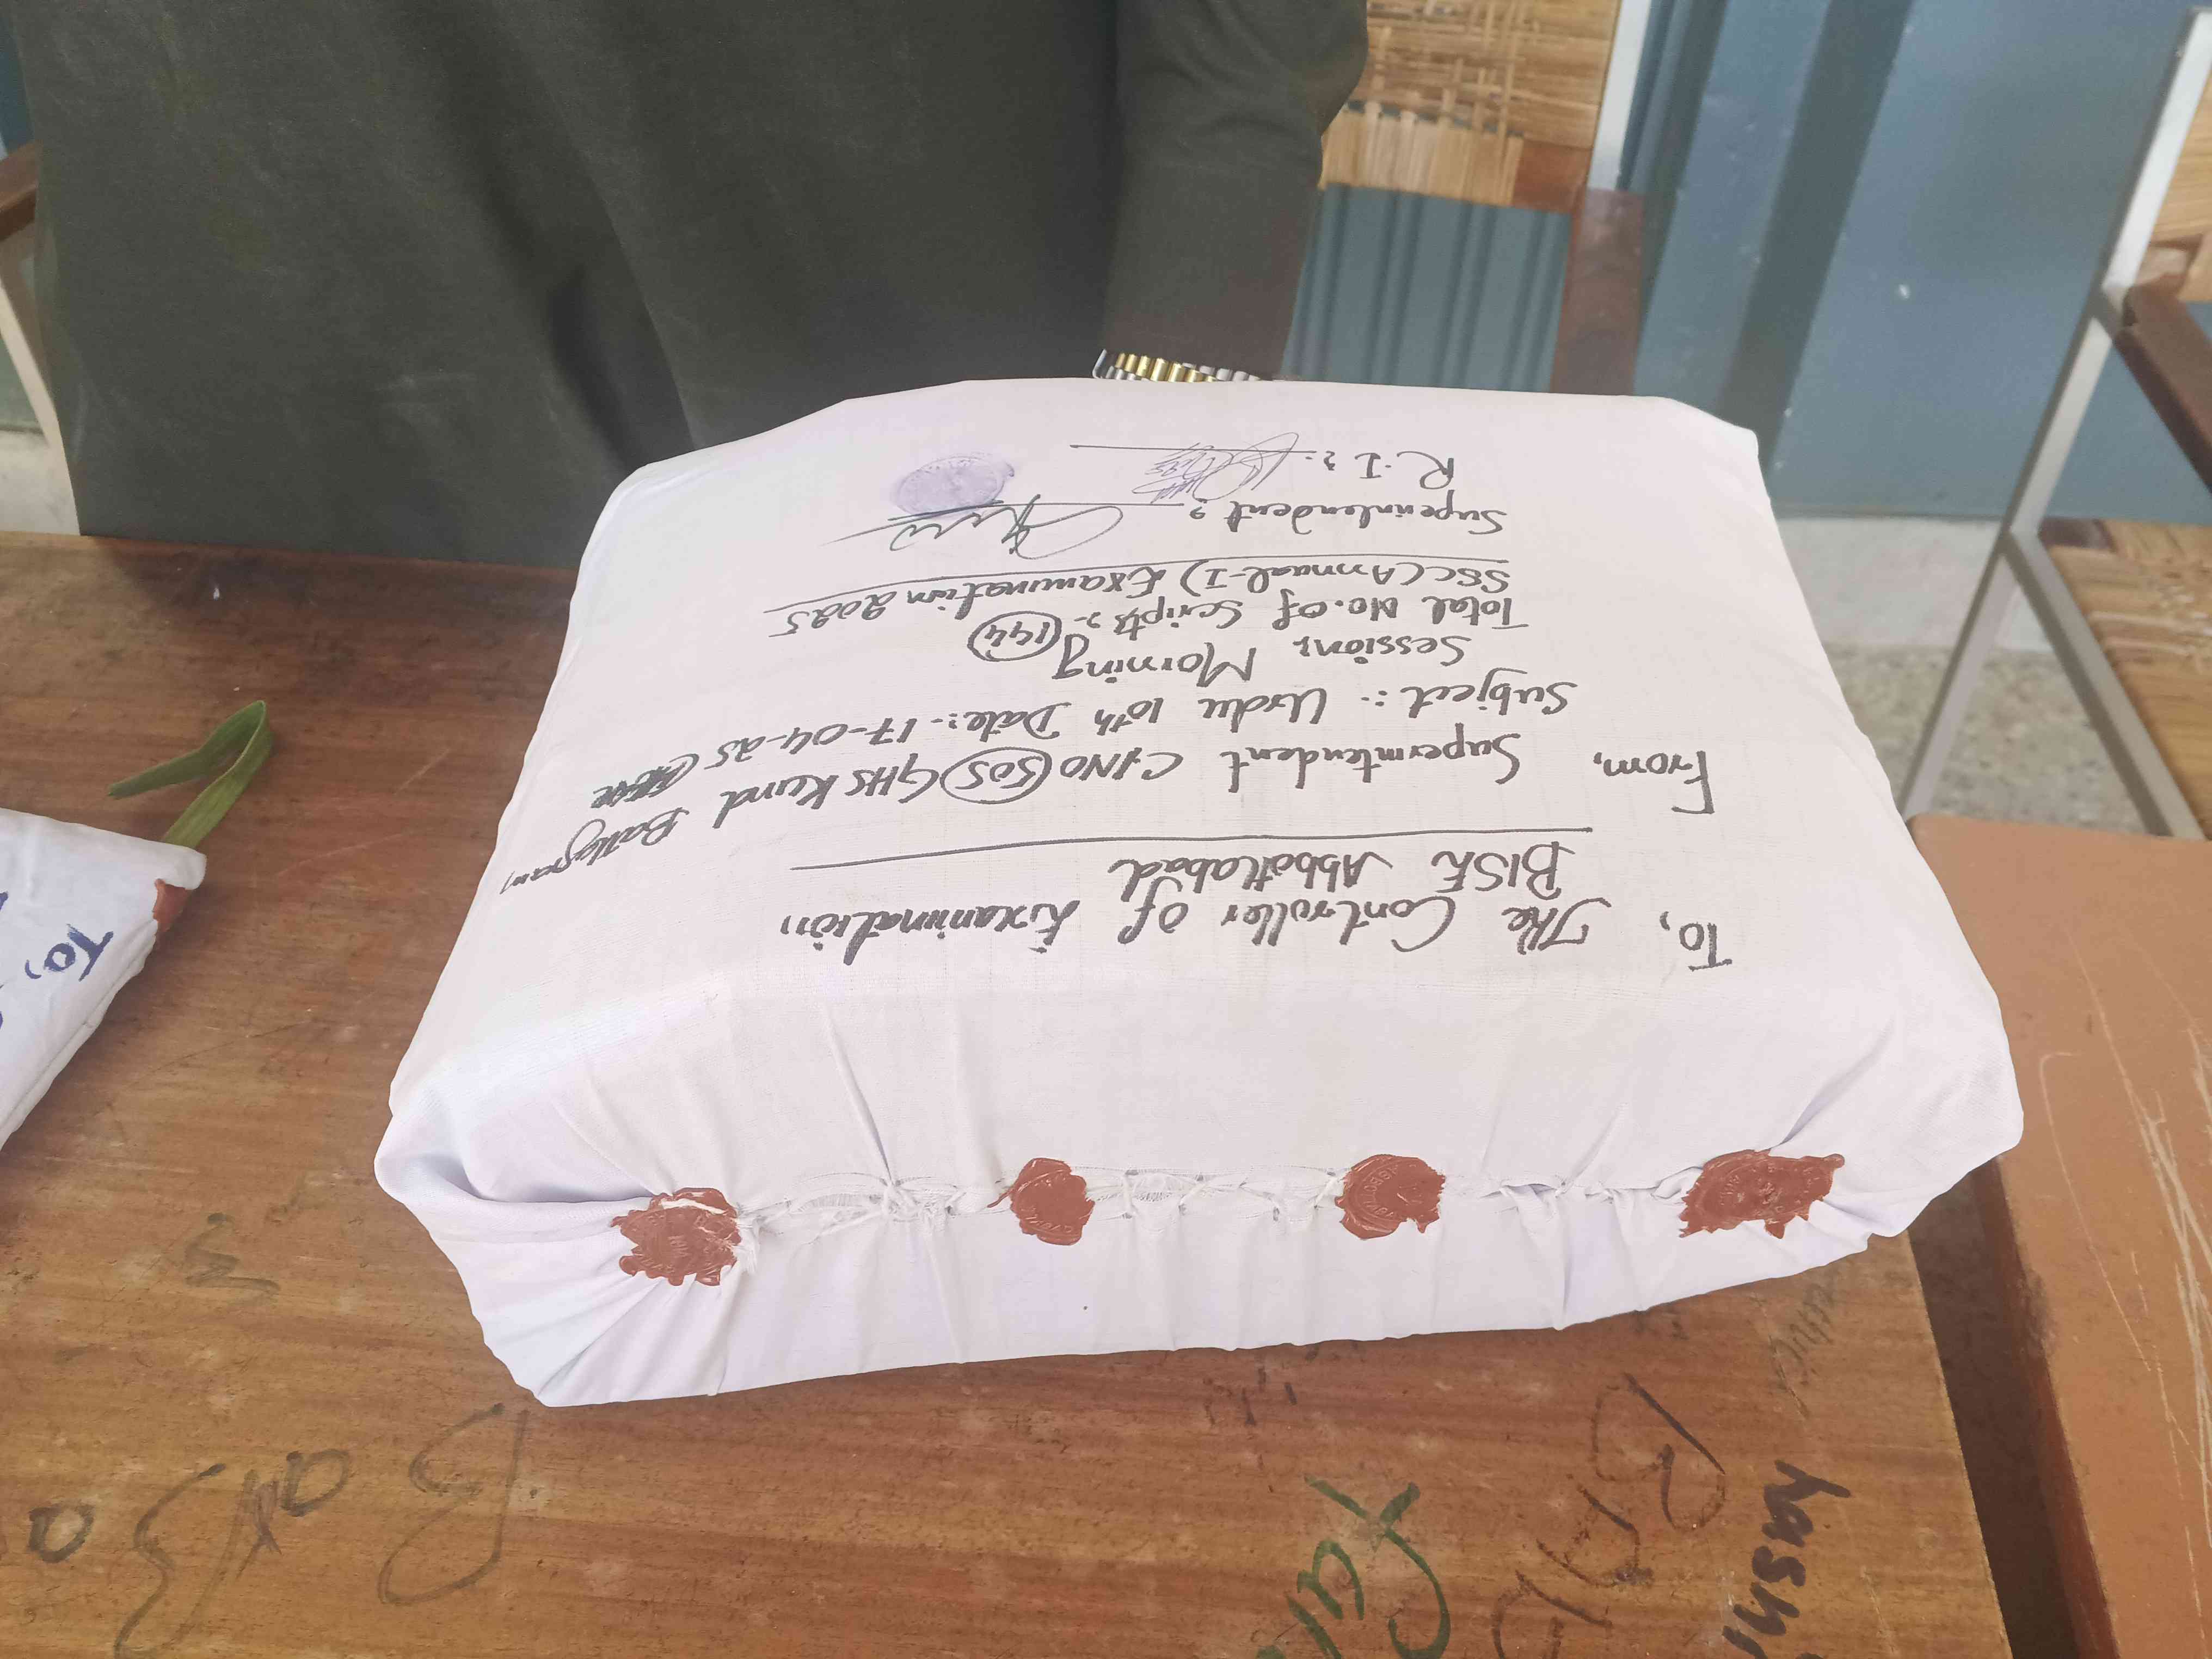 To,
The Controller of Examination
BISE Abbottabad
From,
Superintendent C/NO (505) GHS Kund Battgram
Subject:- Urdu 10th Date:- 17-04-25
Session: Morning
Total No. of Scripts:- (144)
SSC (Annual-I) Examination 2025
Superintendent:
R.I:-
To,